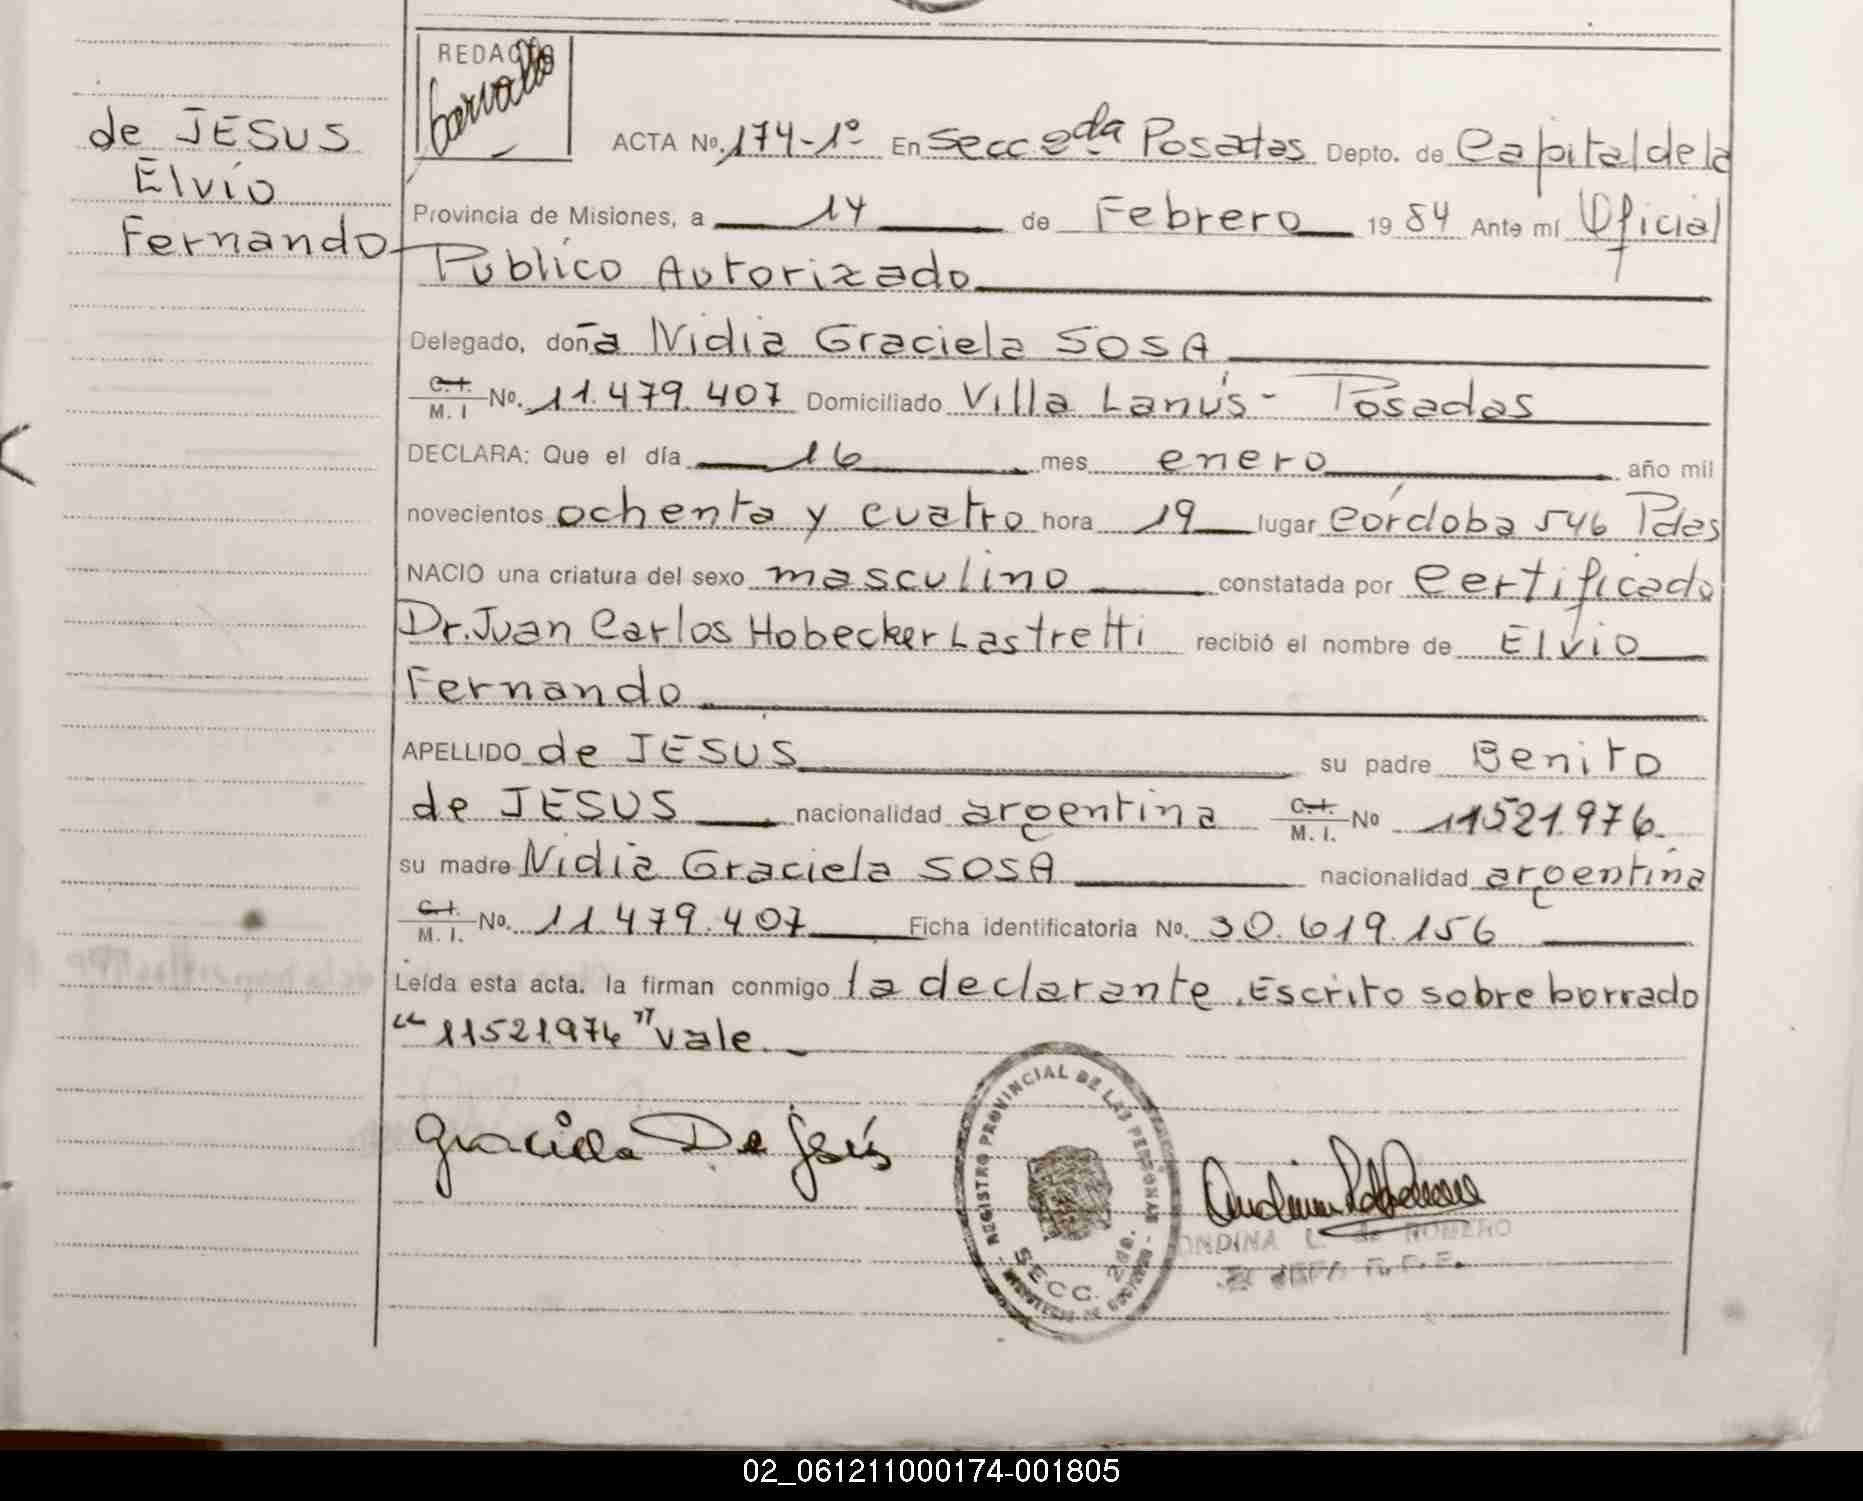 de JESUS
Elvio
Fernando
REDACTO
Carvallo
ACTA No. 174-1º En Secc 2da Posadas Depto. de Capital de la
Provincia de Misiones, a 14 de Febrero 1984 Ante mí Oficial
Público Autorizado
Delegado, doña Nidia Graciela SOSA
C.I. M. I No. 11.479.407 Domiciliado Villa Lanús - Posadas
DECLARA: Que el día 16 mes enero año mil
novecientos ochenta y cuatro hora 19 lugar Córdoba 546 Pdas
NACIO una criatura del sexo masculino constatada por Certificado
Dr. Juan Carlos Hobecker Lastretti recibió el nombre de Elvio
Fernando
APELLIDO de JESUS su padre Benito
de JESUS nacionalidad argentina C.I. M. I. No 11521.976.
su madre Nidia Graciela SOSA nacionalidad argentina
C.I. M. I. No. 11.479.407 Ficha identificatoria No. 30.619.156
Leída esta acta. la firman conmigo la declarante. Escrito sobre borrado
"11521.976" vale.
Graciela De Jesús
REGISTRO PROVINCIAL DE LAS PERSONAS
SECC. 2da.
ONDINA L. de ROMERO
02_061211000174-001805